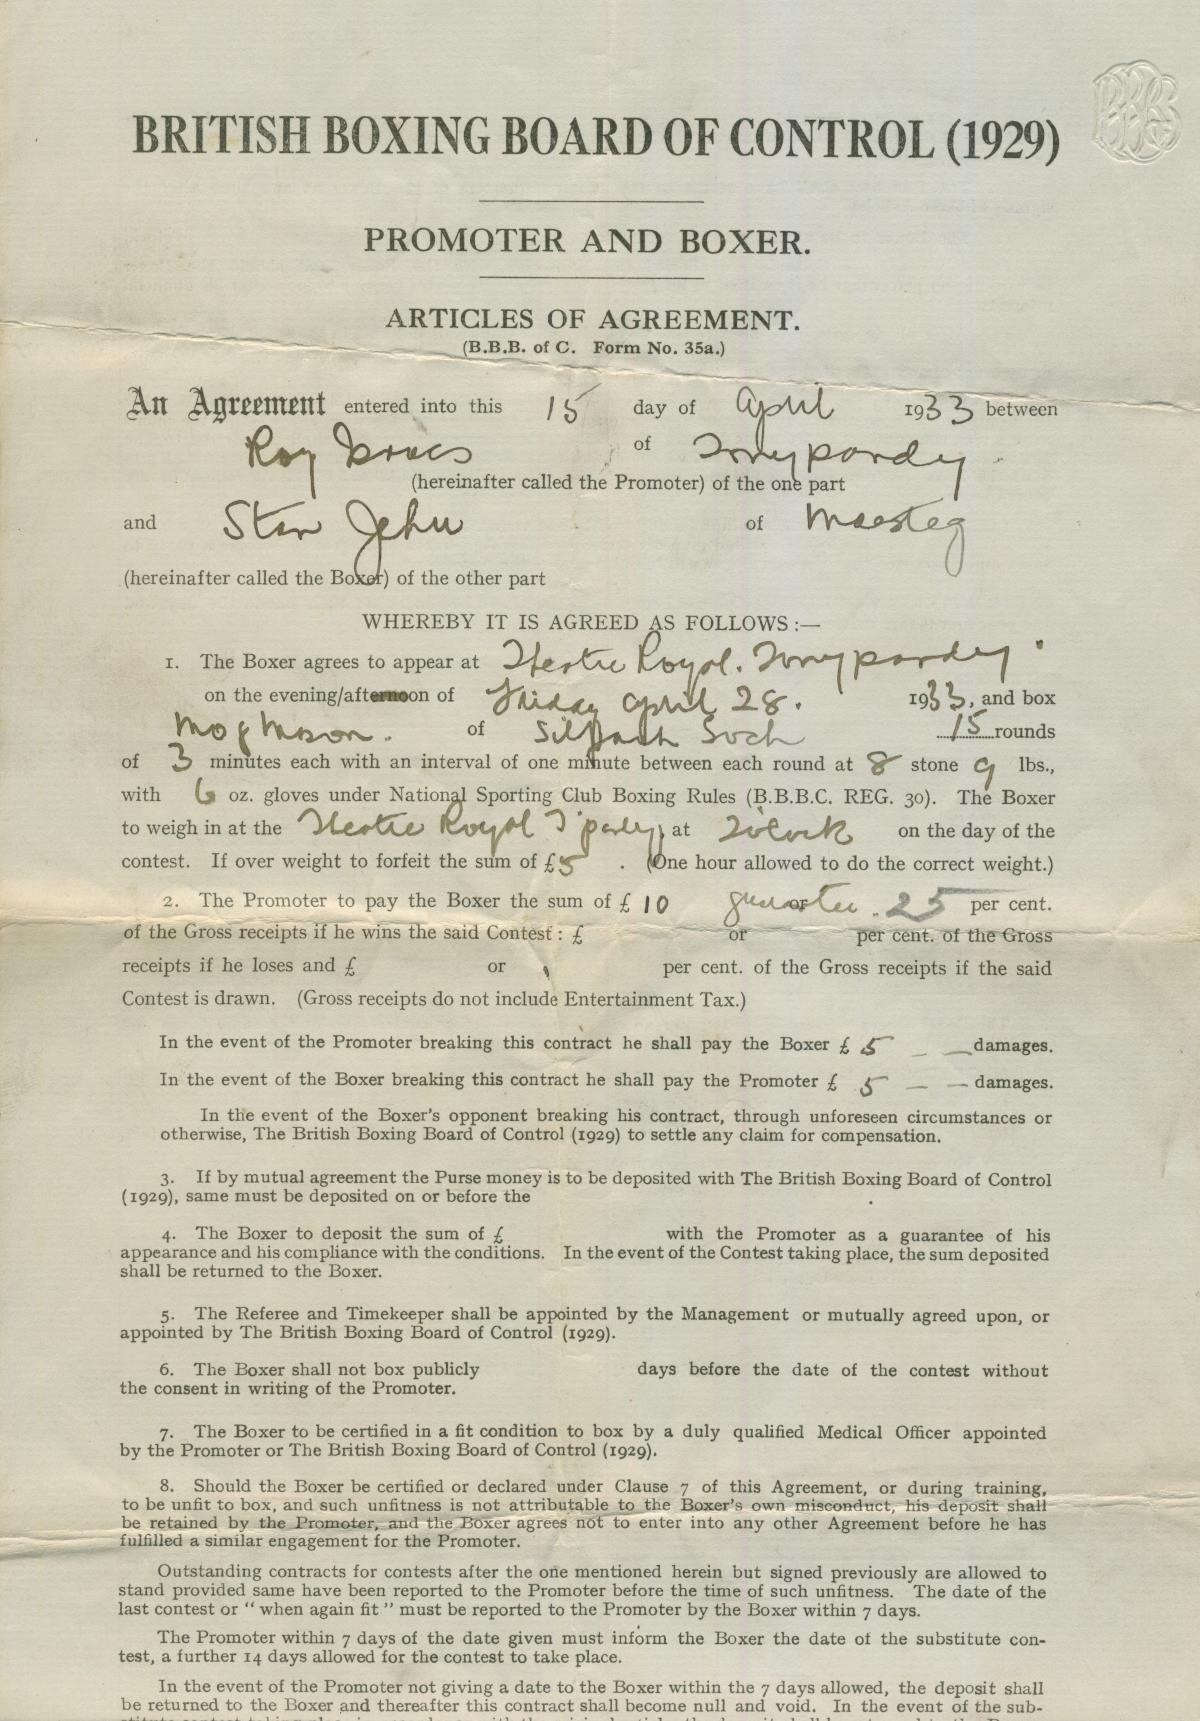 BRITISH BOXING BOARD OF CONTROL (1929)
PROMOTER AND BOXER.
ARTICLES OF AGREEMENT.
(B.B.B. of C. Form No. 35a.)
An Agreement entered into this 15 day of April 1933 between
Roy Isaacs of Tonypandy
(hereinafter called the Promoter) of the one part
and Stan Jehu of Maesteg
(hereinafter called the Boxer) of the other part
WHEREBY IT IS AGREED AS FOLLOWS :—
1. The Boxer agrees to appear at Theatre Royal. Tonypandy
on the evening/afternoon of Friday April 28. 1933, and box
Mog Mason. of 15 rounds
of 3 minutes each with an interval of one minute between each round at 8 stone 9 lbs.,
with 6 oz. gloves under National Sporting Club Boxing Rules (B.B.B.C. REG. 30). The Boxer
to weigh in at the Theatre Royal T'pandy, at on the day of the
contest. If over weight to forfeit the sum of £5. (One hour allowed to do the correct weight.)
2. The Promoter to pay the Boxer the sum of £ 10 or 25 per cent.
of the Gross receipts if he wins the said Contest : £ or per cent. of the Gross
receipts if he loses and £ or per cent. of the Gross receipts if the said
Contest is drawn. (Gross receipts do not include Entertainment Tax.)
In the event of the Promoter breaking this contract he shall pay the Boxer £ 5 — — damages.
In the event of the Boxer breaking this contract he shall pay the Promoter £ 5 — — damages.
In the event of the Boxer's opponent breaking his contract, through unforeseen circumstances or
otherwise, The British Boxing Board of Control (1929) to settle any claim for compensation.
3. If by mutual agreement the Purse money is to be deposited with The British Boxing Board of Control
(1929), same must be deposited on or before the
4. The Boxer to deposit the sum of £ with the Promoter as a guarantee of his
appearance and his compliance with the conditions. In the event of the Contest taking place, the sum deposited
shall be returned to the Boxer.
5. The Referee and Timekeeper shall be appointed by the Management or mutually agreed upon, or
appointed by The British Boxing Board of Control (1929).
6. The Boxer shall not box publicly days before the date of the contest without
the consent in writing of the Promoter.
7. The Boxer to be certified in a fit condition to box by a duly qualified Medical Officer appointed
by the Promoter or The British Boxing Board of Control (1929).
8. Should the Boxer be certified or declared under Clause 7 of this Agreement, or during training,
to be unfit to box, and such unfitness is not attributable to the Boxer's own misconduct, his deposit shall
be retained by the Promoter, and the Boxer agrees not to enter into any other Agreement before he has
fulfilled a similar engagement for the Promoter.
Outstanding contracts for contests after the one mentioned herein but signed previously are allowed to
stand provided same have been reported to the Promoter before the time of such unfitness. The date of the
last contest or “ when again fit ” must be reported to the Promoter by the Boxer within 7 days.
The Promoter within 7 days of the date given must inform the Boxer the date of the substitute con-
test, a further 14 days allowed for the contest to take place.
In the event of the Promoter not giving a date to the Boxer within the 7 days allowed, the deposit shall
be returned to the Boxer and thereafter this contract shall become null and void. In the event of the sub-